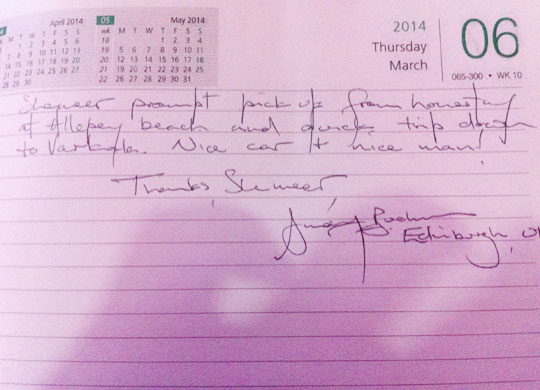 April 2014
M T W T F S S
1 2 3 4 5 6
7 8 9 10 11 12 13
14 15 16 17 18 19 20
21 22 23 24 25 26 27
28 29 30
05 May 2014
wk M T W T F S S
18 1 2 3 4
19 5 6 7 8 9 10 11
20 12 13 14 15 16 17 18
21 19 20 21 22 23 24 25
22 26 27 28 29 30 31
2014
Thursday
March
06
065-300 • WK 10
prompt pick up from homestay
at Allepey beach and quick trip down
to Varkala. Nice car & nice man!
Thanks,
Edinburgh, UK